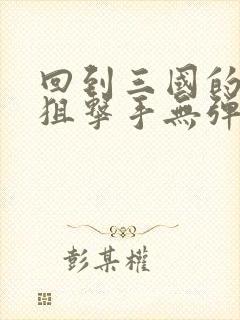 回到三國的
狙撃手無弾
彭某權